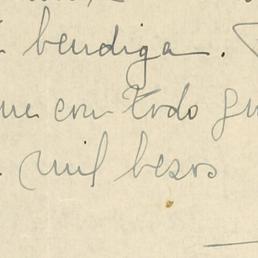 bendiga.
que con todo gu
mil besos